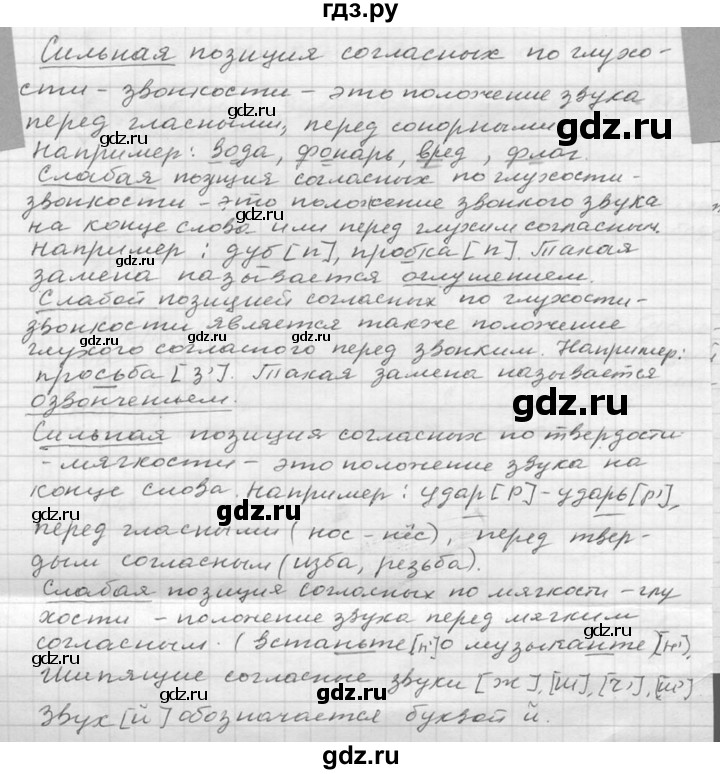 гдз.ру
Сильная позиция согласных по глухо-
сти - звонкости - это положение звука
gdz.ru
gdz.ru
перед гласными, перед сонорными
gdz.ru
Например: вода, фонарь, вред, флаг.
gdz.ru
gdz.ru
Слабая позиция согласных по глухости-
звонкости - это положение звонкого звука
gdz.ru
на конце слова или перед глухим согласным.
Например: дуб [п], пробка [п]. Такая
gdz.ru
gdz.ru
замена называется оглушением.
Слабой позицией согласных по глухости-
gdz.ru
звонкости является также положение
gdz.ru
глухого согласного перед звонким. Например:
просьба [з']. Такая замена называется
gdz.ru
озвончением.
gdz.ru
Сильная позиция согласных по твердости
- мягкости - это положение звука на
gdz.ru
gdz.ru
конце слова. Например: удар [р] - ударь [р'],
gdz.ru
перед гласными (нос - нёс), перед твер-
gdz.ru
дым согласным (изба, резьба).
gdz.ru
Слабая позиция согласных по мягкости - глу
gdz.ru
хости - положение звука перед мягким
gdz.ru
согласным. (встаньте [н'] о музыканте) [н'].
gdz.ru
gdz.ru
Шипящие согласные звуки [ж], [ш], [ч'], [щ']
gdz.ru
gdz.ru
Звук [й] обозначается буквой й.
gdz.ru